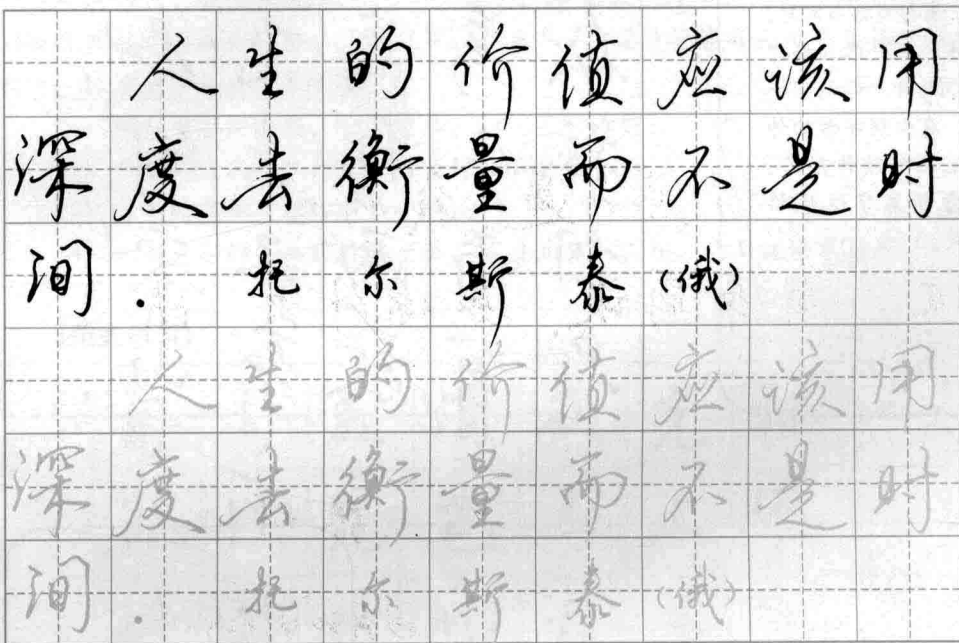 人生的价值应该用
深度去衡量而不是时
间.托尔斯泰(俄)
人生的价值应该用
深度去衡量而不是时
间.托尔斯泰(俄)